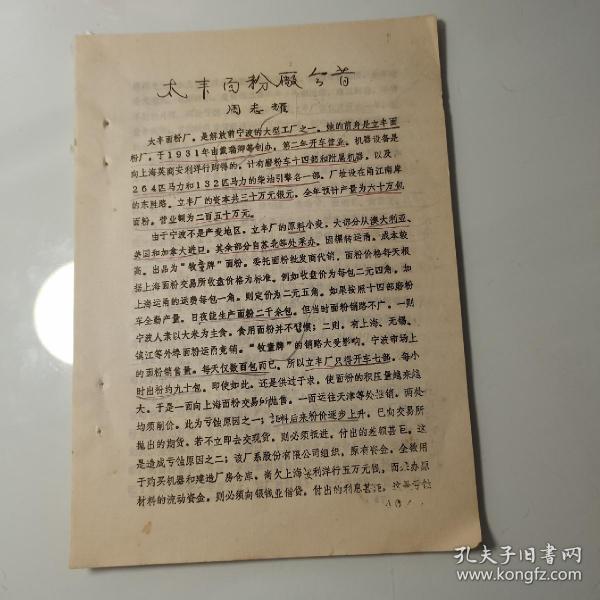 太丰面粉厂今昔
周志耀
太丰面粉厂，是解放前宁波的大型工厂之一。她的前身是立丰面
粉厂，于1931年由戴瑞卿等创办，第二年开车营业。机器设备是
向上海英商安利洋行购得的，计有磨粉车十四部和附属机器，以及
264匹马力和132匹马力的柴油引擎各一部。厂址设在甬江南岸
的东胜路。立丰厂的资本共三十万元银元，全年预计产量为六十万包
面粉，营业额为二百五十万元。
由于宁波不是产麦地区，立丰厂的原料小麦，大部分从澳大利亚、
美国和加拿大进口，其余部分自苏北等处采办。因辗转运甬，成本较
高。出品为“牧童牌”面粉。委托面粉批发商代销，面粉价格每天根
据上海面粉交易所收盘价格为标准。例如收盘价为每包二元四角，如
上海运甬的运费每包一角，则定价为二元五角。如果按照十四部磨粉
车全勤产量，日夜能生产面粉二千余包。但当时面粉销路不广，一则
宁波人素以大米为主食，食用面粉并不习惯；二则，有上海、无锡、
镇江等外埠面粉运甬竞销，“牧童牌”的销路大受影响。宁波市场上
的面粉销售量，每天仅数百包而已。所以立丰厂只得开车七部，每小
时出粉约九十包。即使如此，还是供过于求，使面粉的积压量越来越
大。于是一面向上海面粉交易所抛售，一面运往天津等处推销，两处
均须削价。此为亏蚀原因之一；讵料后来粉价逐步上升，已向交易所
抛出的期货，若不立即去交现货，则必须抵进，付出的差额甚巨。这
是造成亏蚀原因之二；该厂系股份有限公司组织，原有资金，全数用
于购买机器和建造厂房仓库，尚欠上海安利洋行五万元钱，而采办原
材料的流动资金，则必须向银钱业借贷，付出的利息甚巨，
孔夫子旧书网
www.kongfz.com